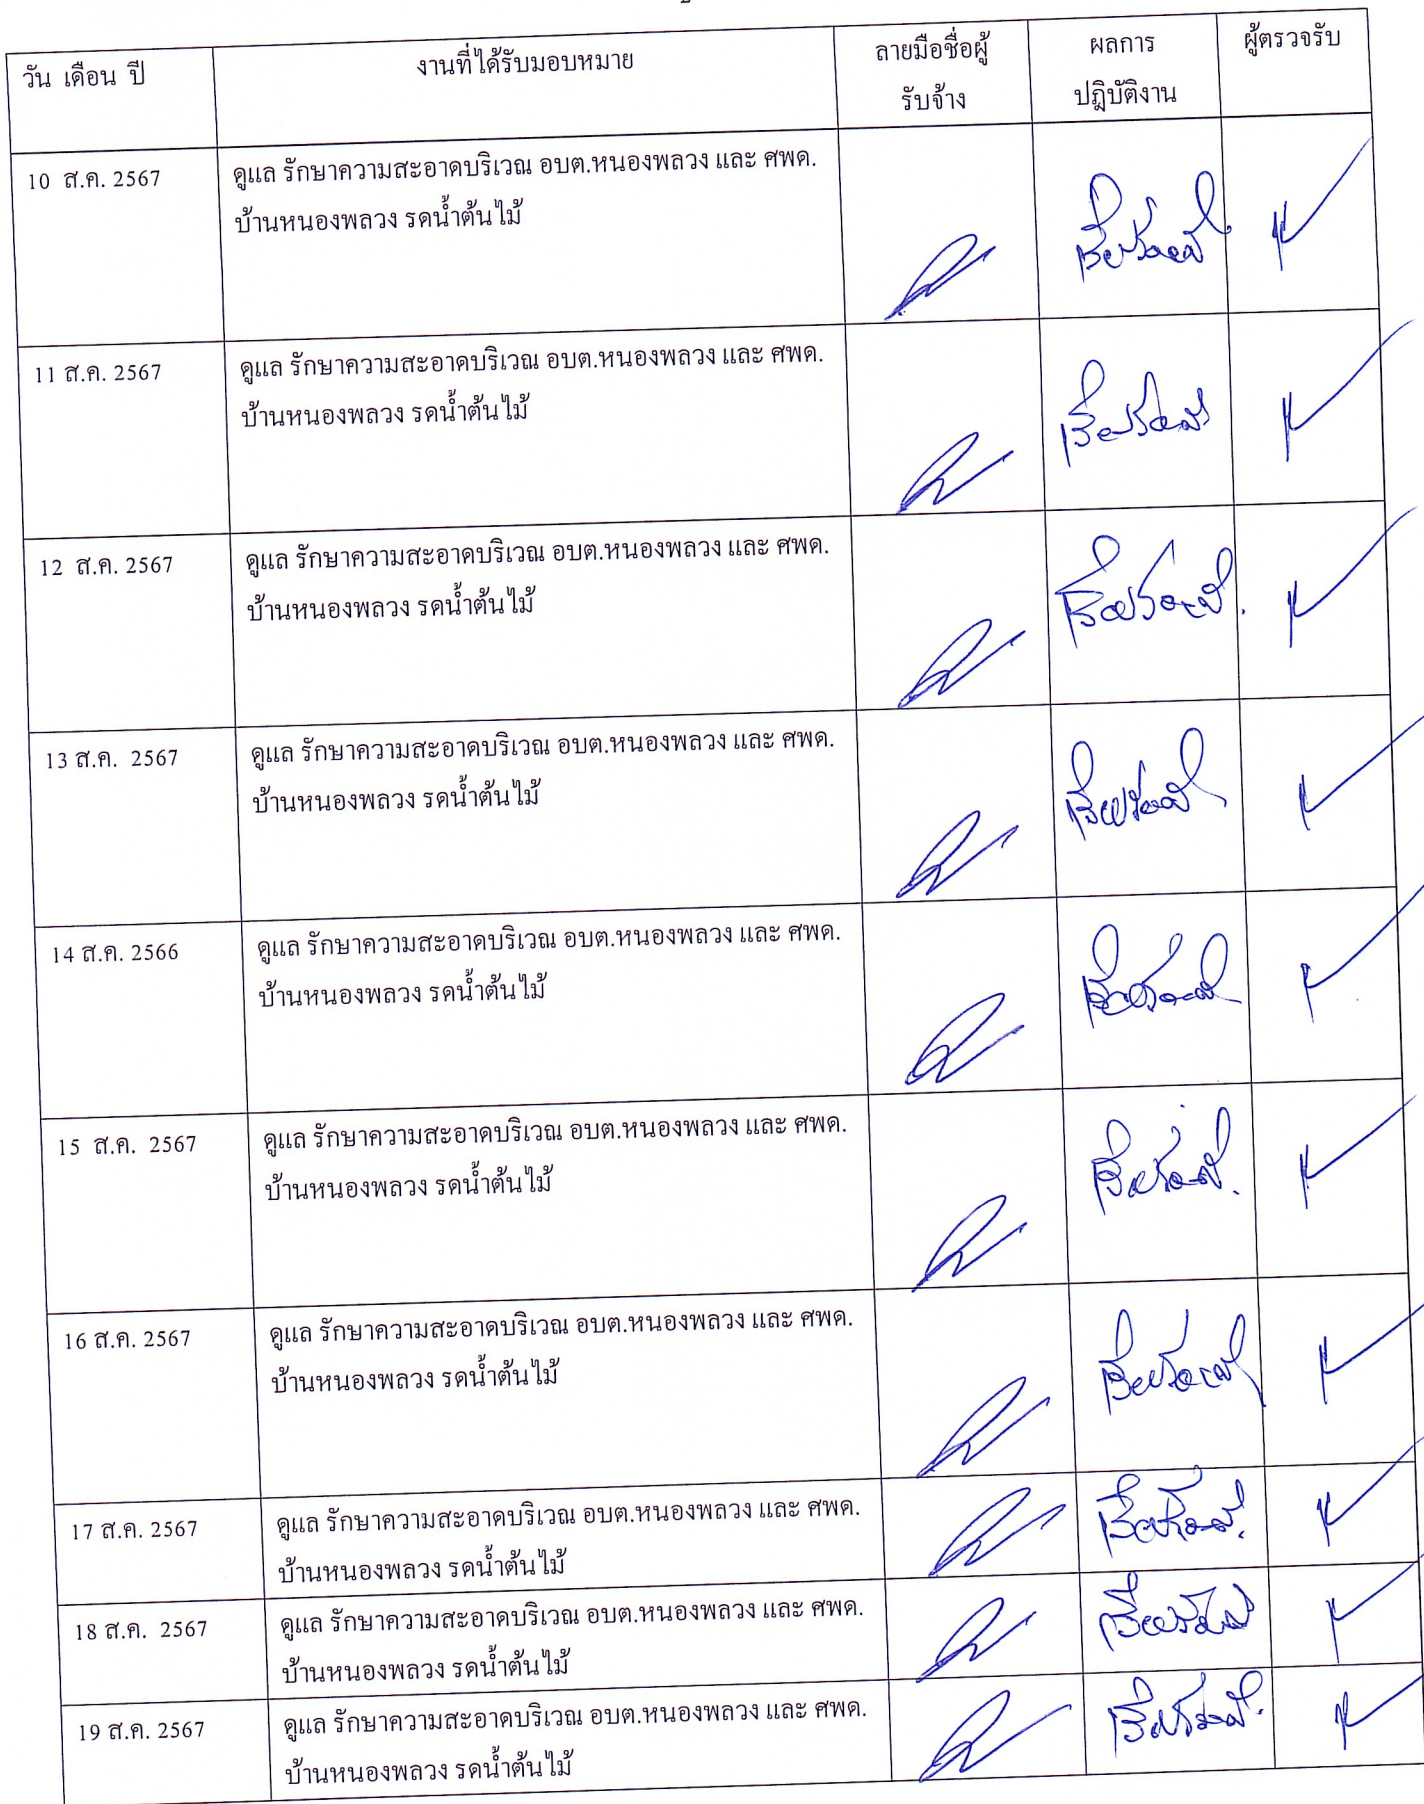 วัน เดือน ปี
งานที่ได้รับมอบหมาย
ลายมือชื่อผู้
รับจ้าง
ผลการ
ปฎิบัติงาน
ผู้ตรวจรับ
10 ส.ค. 2567
ดูแล รักษาความสะอาดบริเวณ อบต.หนองพลวง และ ศพด.
บ้านหนองพลวง รดน้ำต้นไม้
11 ส.ค. 2567
ดูแล รักษาความสะอาดบริเวณ อบต.หนองพลวง และ ศพด.
บ้านหนองพลวง รดน้ำต้นไม้
12 ส.ค. 2567
ดูแล รักษาความสะอาดบริเวณ อบต.หนองพลวง และ ศพด.
บ้านหนองพลวง รดน้ำต้นไม้
13 ส.ค. 2567
ดูแล รักษาความสะอาดบริเวณ อบต.หนองพลวง และ ศพด.
บ้านหนองพลวง รดน้ำต้นไม้
14 ส.ค. 2566
ดูแล รักษาความสะอาดบริเวณ อบต.หนองพลวง และ ศพด.
บ้านหนองพลวง รดน้ำต้นไม้
15 ส.ค. 2567
ดูแล รักษาความสะอาดบริเวณ อบต.หนองพลวง และ ศพด.
บ้านหนองพลวง รดน้ำต้นไม้
16 ส.ค. 2567
ดูแล รักษาความสะอาดบริเวณ อบต.หนองพลวง และ ศพด.
บ้านหนองพลวง รดน้ำต้นไม้
17 ส.ค. 2567
ดูแล รักษาความสะอาดบริเวณ อบต.หนองพลวง และ ศพด.
บ้านหนองพลวง รดน้ำต้นไม้
18 ส.ค. 2567
ดูแล รักษาความสะอาดบริเวณ อบต.หนองพลวง และ ศพด.
บ้านหนองพลวง รดน้ำต้นไม้
19 ส.ค. 2567
ดูแล รักษาความสะอาดบริเวณ อบต.หนองพลวง และ ศพด.
บ้านหนองพลวง รดน้ำต้นไม้